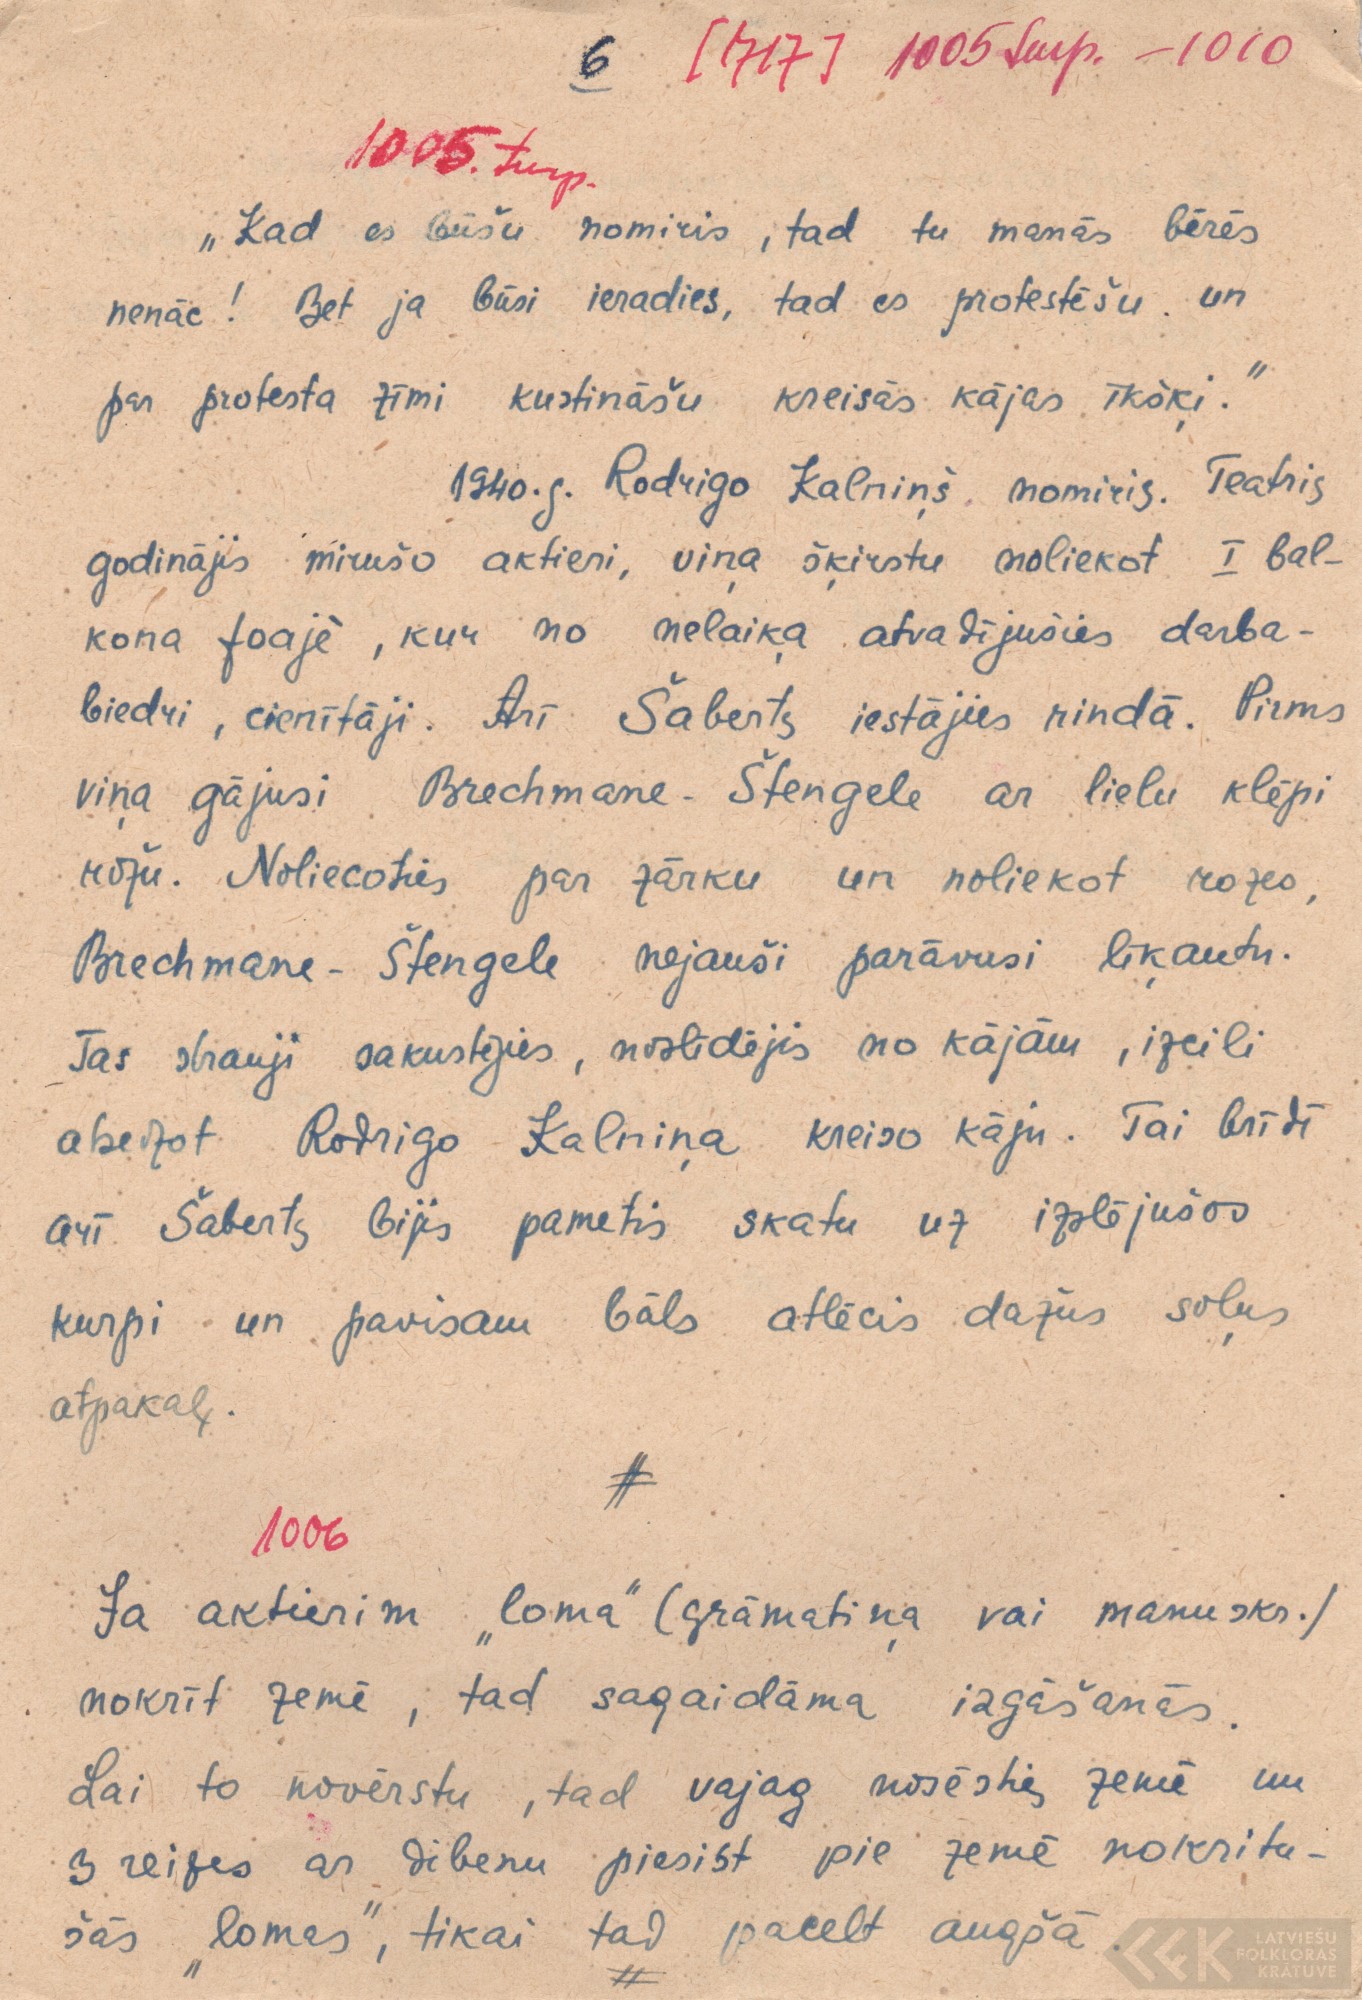 6 [1717] 1005 turp. – 1010
1005. turp.
„Kad es būšu nomiris, tad tu manās bērēs
nenāc! Bet ja būsi ieradies, tad es protestēšu un
par protesta zīmi kustināšu kreisās kājas īkšķi."
1940.g. Rodrigo Kalniņš nomiris. Teatris
godinājis mirušo aktieri, viņa šķirstu noliekot I bal-
kona foajē, kur no nelaiķa atvadījušies darba-
biedri, cienītāji. Arī Šaberts iestājies rindā. Pirms
viņa gājusi Brechmane-Štengele ar lielu klēpi
rožu. Noliecoties par zārku un noliekot rozes,
Brechmane-Štengele nejauši parāvusi līķautu.
Tas strauji sakustējies, noslīdējis no kājām, izcili
atsedzot Rodrigo Kalniņa kreiso kāju. Tai brīdī
arī Šaberts bijis pametis skatu uz izslējušos
kurpi un pavisam bāls atlēcis dažus soļus
atpakaļ.
#
1006
Ja aktierim „loma" (grāmatiņa vai manuskr./
nokrīt zemē, tad sagaidāma izgāšanās.
Lai to novērstu, tad vajag nosēsties zemē un
3 reizes ar dibenu piesist pie zemē nokritu-
šās „lomas", tikai tad pacelt augšā.
#
LATVIEŠU
FOLKLORAS
KRĀTUVE